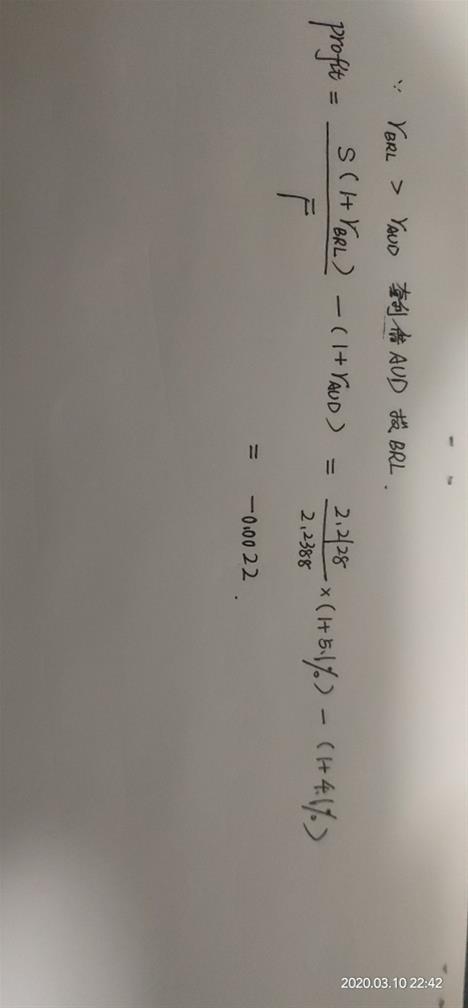 ∵ r_BRL > r_AUD 套利借AUD投BRL.
profit = S(1+r_BRL)/F - (1+r_AUD) = 2.2128/2.2388 × (1+5.1%) - (1+4.1%)
= -0.0022.
2020.03.10 22:42